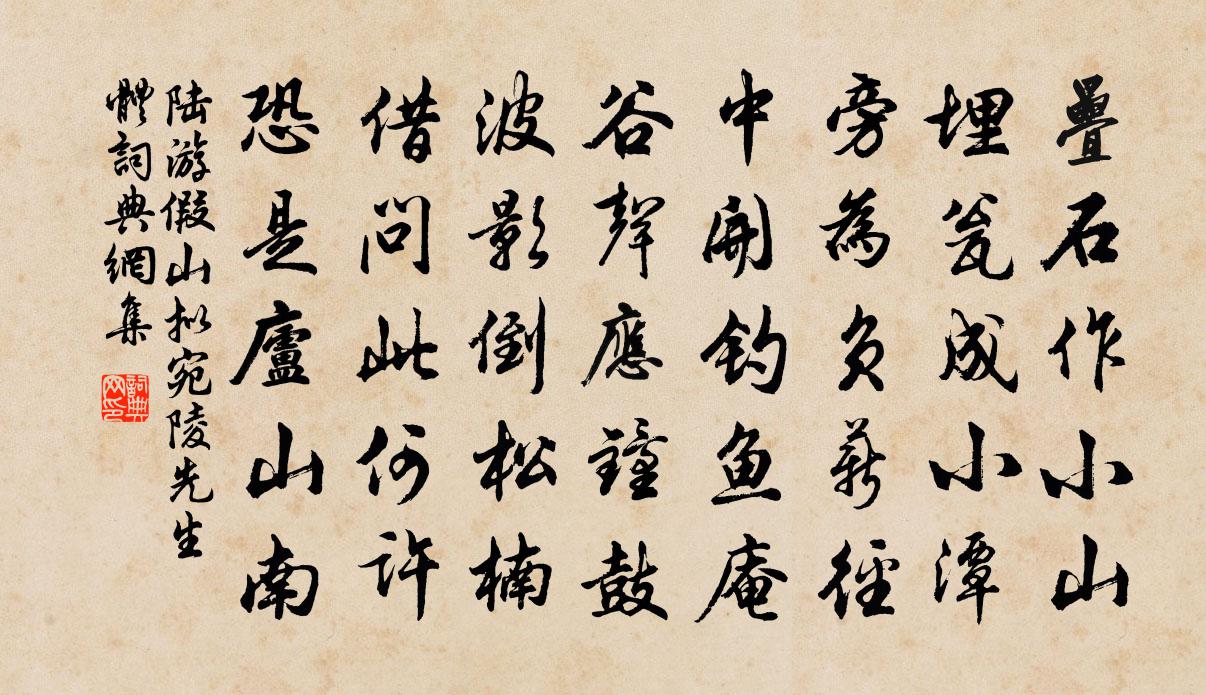 疊石作小山
埋瓮成小潭
旁為負薪徑
中開釣魚庵
谷聲應鐘鼓
波影倒松楠
借問此何許
恐是廬山南
陆游假山拟宛陵先生
體詞典網集
詞典
网印